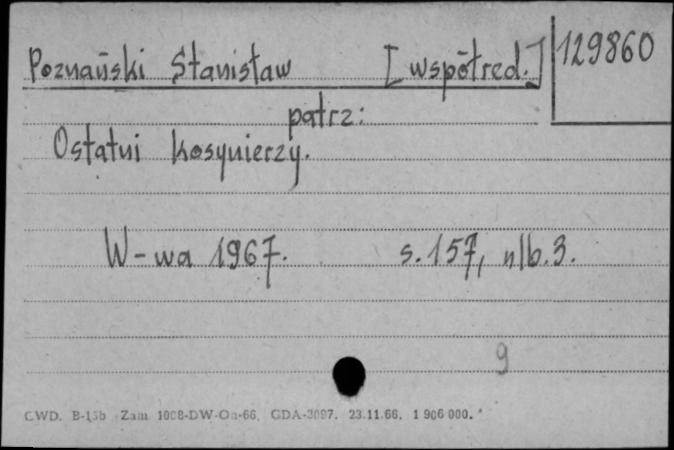 Poznański Stanisław [współred.] 129860
patrz:
Ostatni kosynierzy.
W-wa 1967. s. 157, nlb. 3.
9
CWD. B-15b Zam. 1008-DW-On-66. GDA-3097. 23.11.66. 1 906 000.